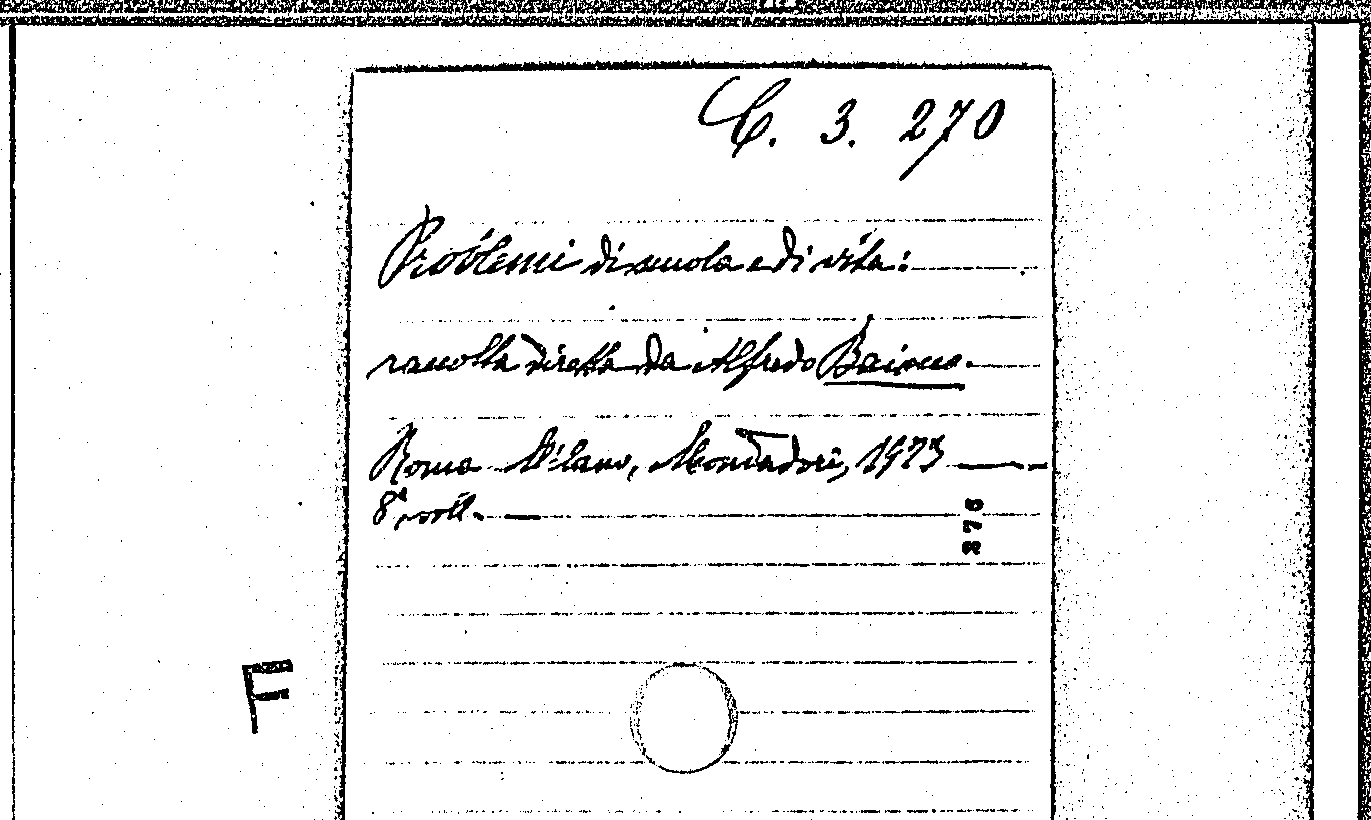 C. 3. 270
Problemi di scuola e di vita:
raccolta diretta da Alfredo
Roma Milano, Mondadori, 1923
8° voll.
376
F